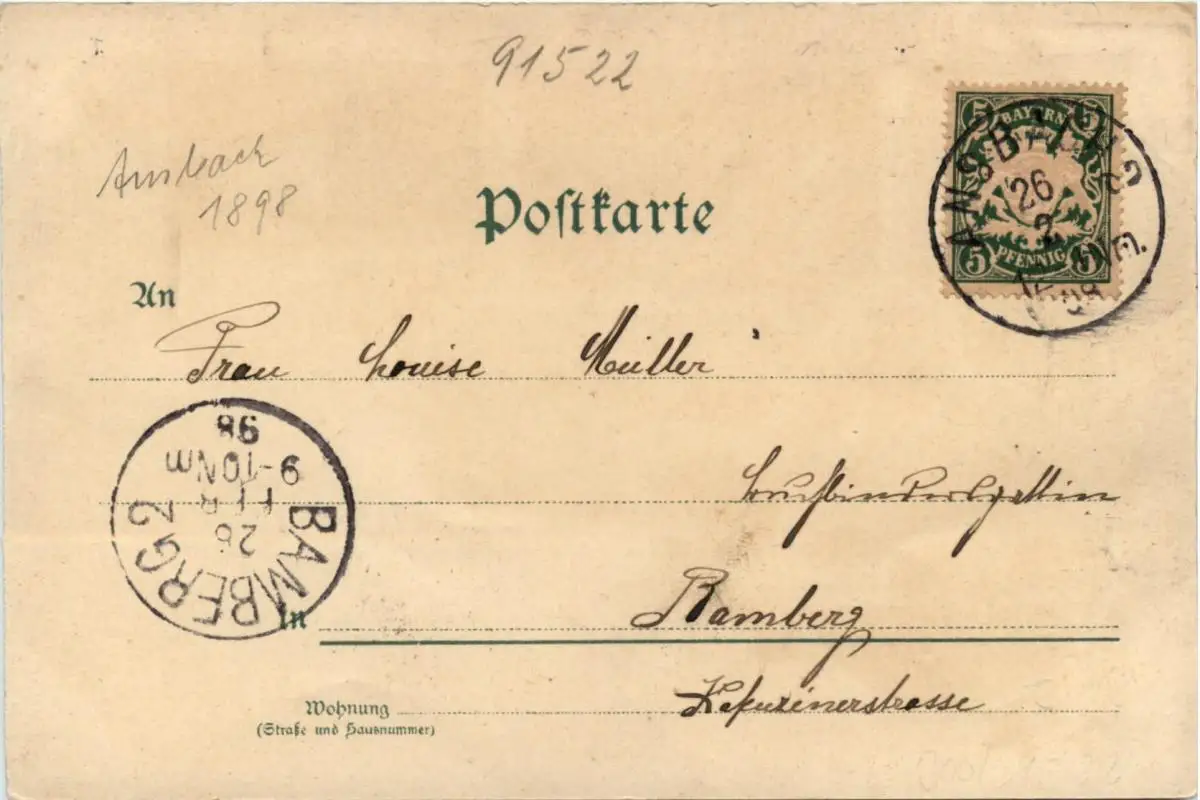 91522
Ansbach
1898
BAYERN
5 5
PFENNIG
5 5
ANSBACH
26
2
12 Nm.
98
Postkarte
An
Frau Louise Müller
Buchbindersgattin
BAMBERG 2
26
FEB
9-10 Nm
98
In
Bamberg
Wohnung
(Straße und Hausnummer)
Kapuzinerstrasse